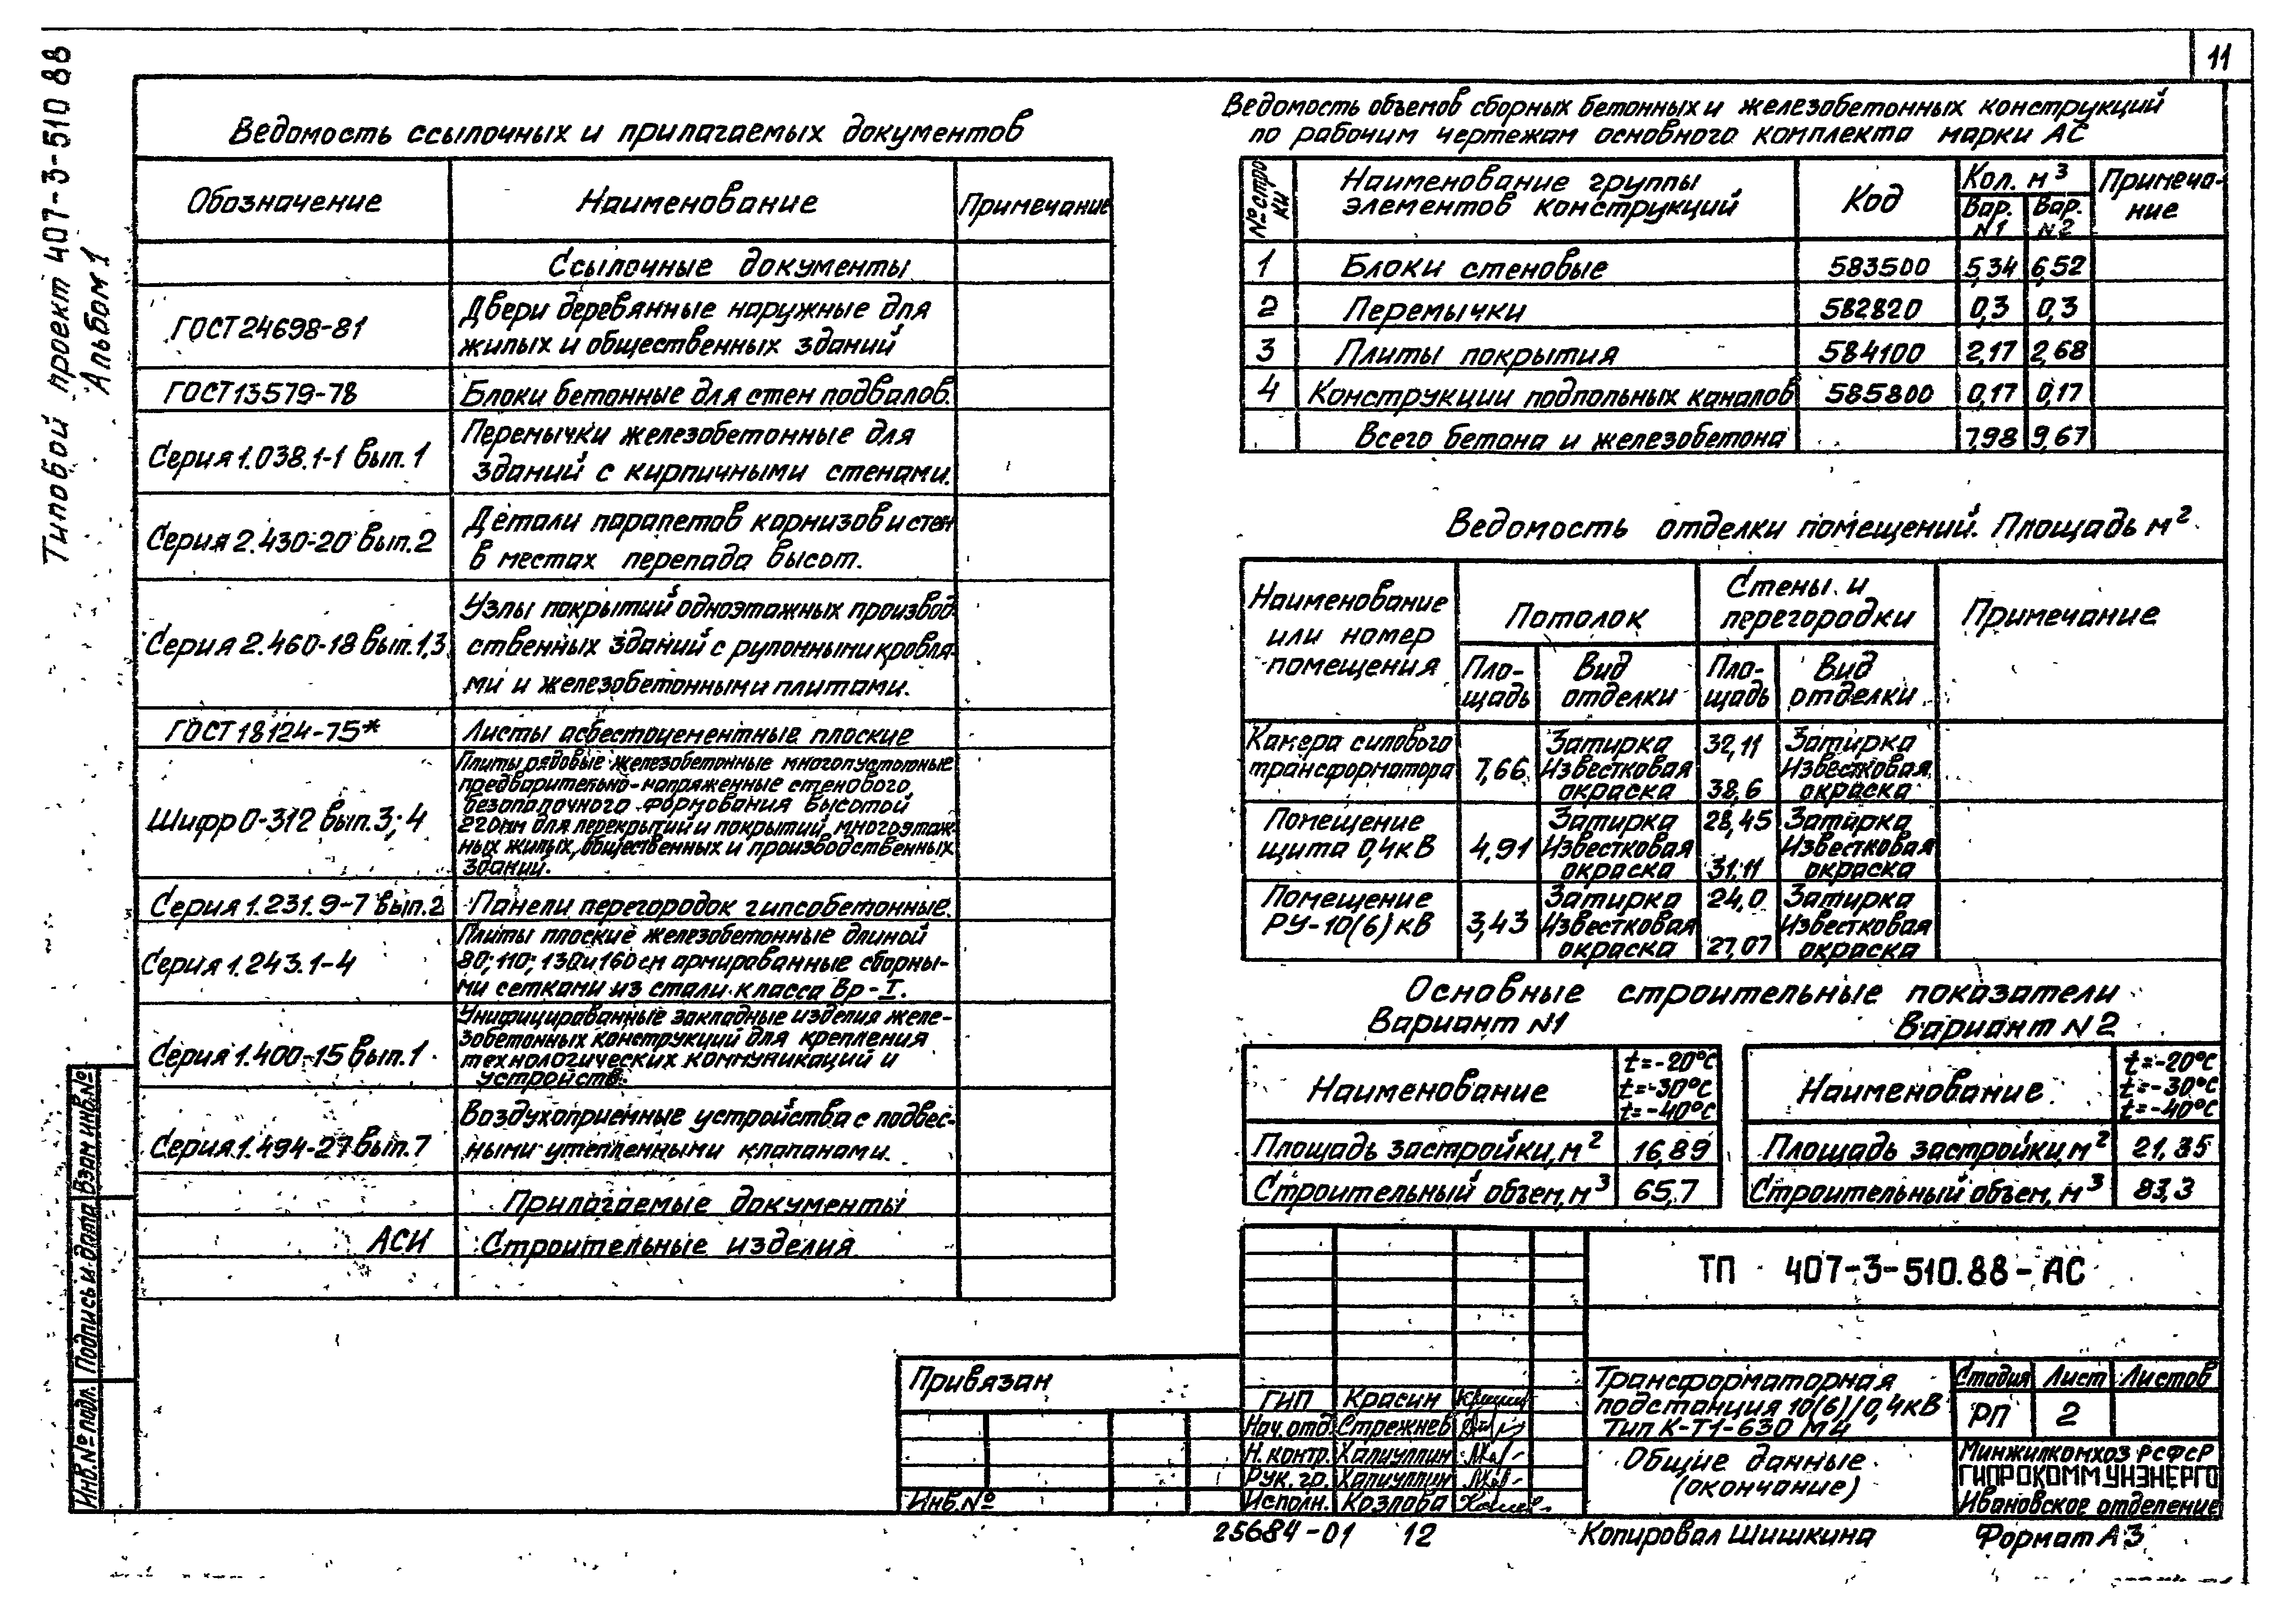 11
Типовой проект 407-3-510 88
Альбом 1
Ведомость ссылочных и прилагаемых документов
Обозначение Наименование Примечание
Ссылочные документы
ГОСТ 24698-81 Двери деревянные наружные для
жилых и общественных зданий
ГОСТ 13579-78 Блоки бетонные для стен подвалов.
Серия 1.038.1-1 вып.1 Перемычки железобетонные для
зданий с кирпичными стенами.
Серия 2.430-20 вып.2 Детали парапетов карнизов и стен
в местах перепада высот.
Серия 2.460-18 вып.1,3 Узлы покрытий одноэтажных производ-
ственных зданий с рулонными кровля-
ми и железобетонными плитами.
ГОСТ 18124-75* Листы асбестоцементные плоские
Шифр 0-312 вып.3; 4 Плиты рядовые железобетонные многопустотные
предварительно-напряженные стенового
безопалочного формования высотой
220мм для перекрытий и покрытий многоэтаж-
ных жилых, общественных и производственных
зданий.
Серия 1.231.9-7 вып.2 Панели перегородок гипсобетонные.
Серия 1.243.1-4 Плиты плоские железобетонные длиной
80; 110; 130 и 160 см армированные сварны-
ми сетками из стали класса Вр-I.
Серия 1.400-15 вып.1 Унифицированные закладные изделия желе-
зобетонных конструкций для крепления
технологических коммуникаций и
устройств.
Серия 1.494-27 вып.7 Воздухоприемные устройства с подвес-
ными утепленными клапанами.
Прилагаемые документы
АСИ Строительные изделия
Ведомость объемов сборных бетонных и железобетонных конструкций
по рабочим чертежам основного комплекта марки АС
№ стро
ки
Наименование группы
элементов конструкций
Код
Кол. м³
Вар.
N1
Вар.
N2
Примеча-
ние
1 Блоки стеновые 583500 5,34 6,52
2 Перемычки 582820 0,3 0,3
3 Плиты покрытия 584100 2,17 2,68
4 Конструкции подпольных каналов 585800 0,17 0,17
Всего бетона и железобетона 7,98 9,67
Ведомость отделки помещений. Площадь м²
Наименование
или номер
помещения
Потолок
Стены и
перегородки
Примечание
Пло-
щадь
Вид
отделки
Пло-
щадь
Вид
отделки
Камера силового
трансформатора
7,66
Затирка
Известковая
окраска
32,11
38,6
Затирка
Известковая
окраска
Помещение
щита 0,4кВ
4,91
Затирка
Известковая
окраска
28,45
31,11
Затирка
Известковая
окраска
Помещение
РУ-10(6) кВ
3,43
Затирка
Известковая
окраска
24,0
27,07
Затирка
Известковая
окраска
Основные строительные показатели
Вариант N1
Наименование
t=-20°С
t=-30°С
t=-40°С
Площадь застройки, м² 16,89
Строительный объем, м³ 65,7
Вариант N2
Наименование
t=-20°С
t=-30°С
t=-40°С
Площадь застройки, м² 21,35
Строительный объем, м³ 83,3
ТП 407-3-510.88-АС
Привязан
Инв.№
ГИП Красин
Нач.отд. Стрежнев
Н.контр. Халиуллин
Рук.гр. Халиуллин
Исполн. Козлова
Трансформаторная
подстанция 10(6)/0,4кВ
Тип К-Т1-630 М4
Общие данные
(окончание)
Стадия Лист Листов
РП 2
Минжилкомхоз РСФСР
ГИПРОКОММУНЭНЕРГО
Ивановское отделение
Взам инв.№
Подпись и дата
Инв.№ подл.
25684-01 12 Копировал Шишкина Формат А3